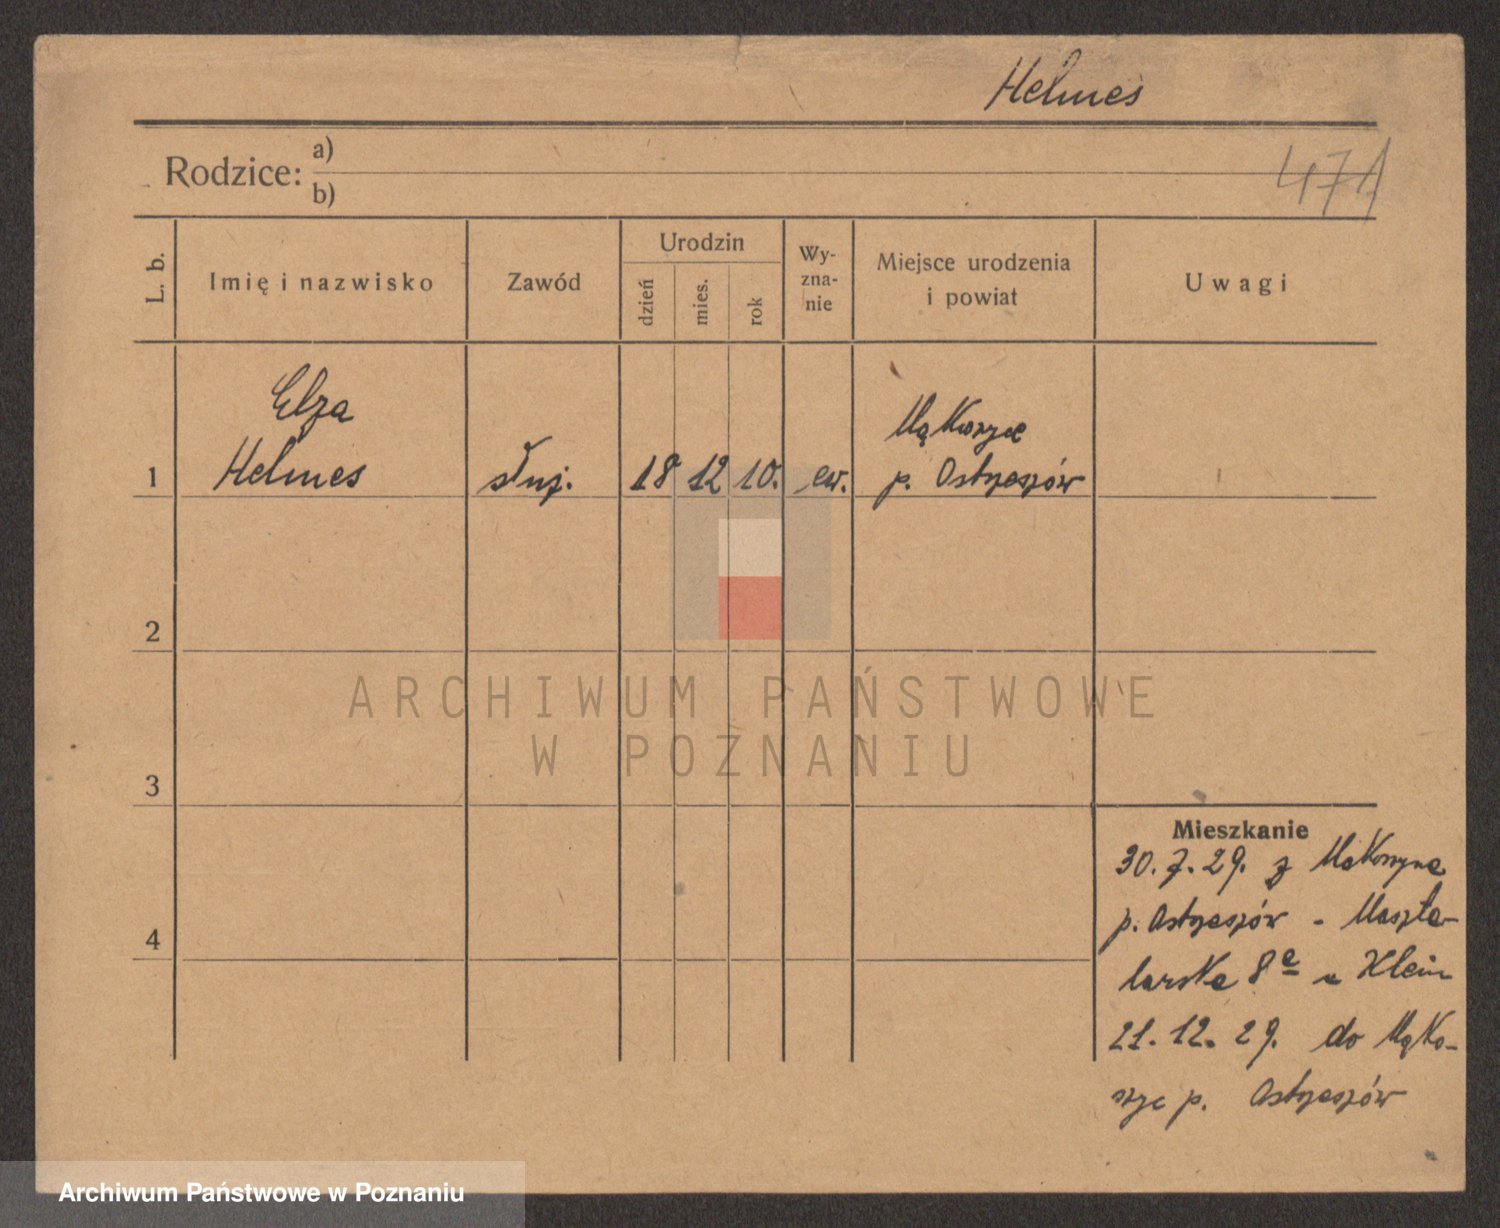 Helmes
Rodzice: a)
b)
471
L. b.
Imię i nazwisko
Zawód
Urodzin
dzień
mies.
rok
Wy-
zna-
nie
Miejsce urodzenia
i powiat
Uwagi
Elza
Mąkoszyce
1 Helmes służ. 18 12 10. ew. p. Ostrzeszów
2
ARCHIWUM PAŃSTWOWE
W POZNANIU
3
Mieszkanie
30.7.29. z
p. Ostrzeszów - Maszta-
4
larska 8a u Klein
21.12.29. do Mąko-
szyc p. Ostrzeszów
Archiwum Państwowe w Poznaniu